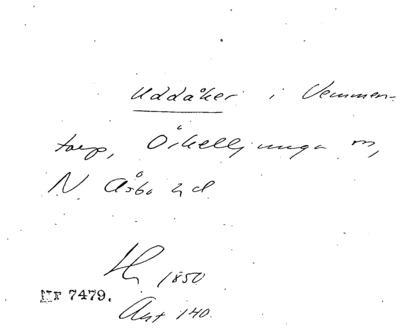 Uddåker i Vemmen-
torp, Örkelljunga sn,
N Åsbo hd
1850
Nr 7479.
Ant 140.